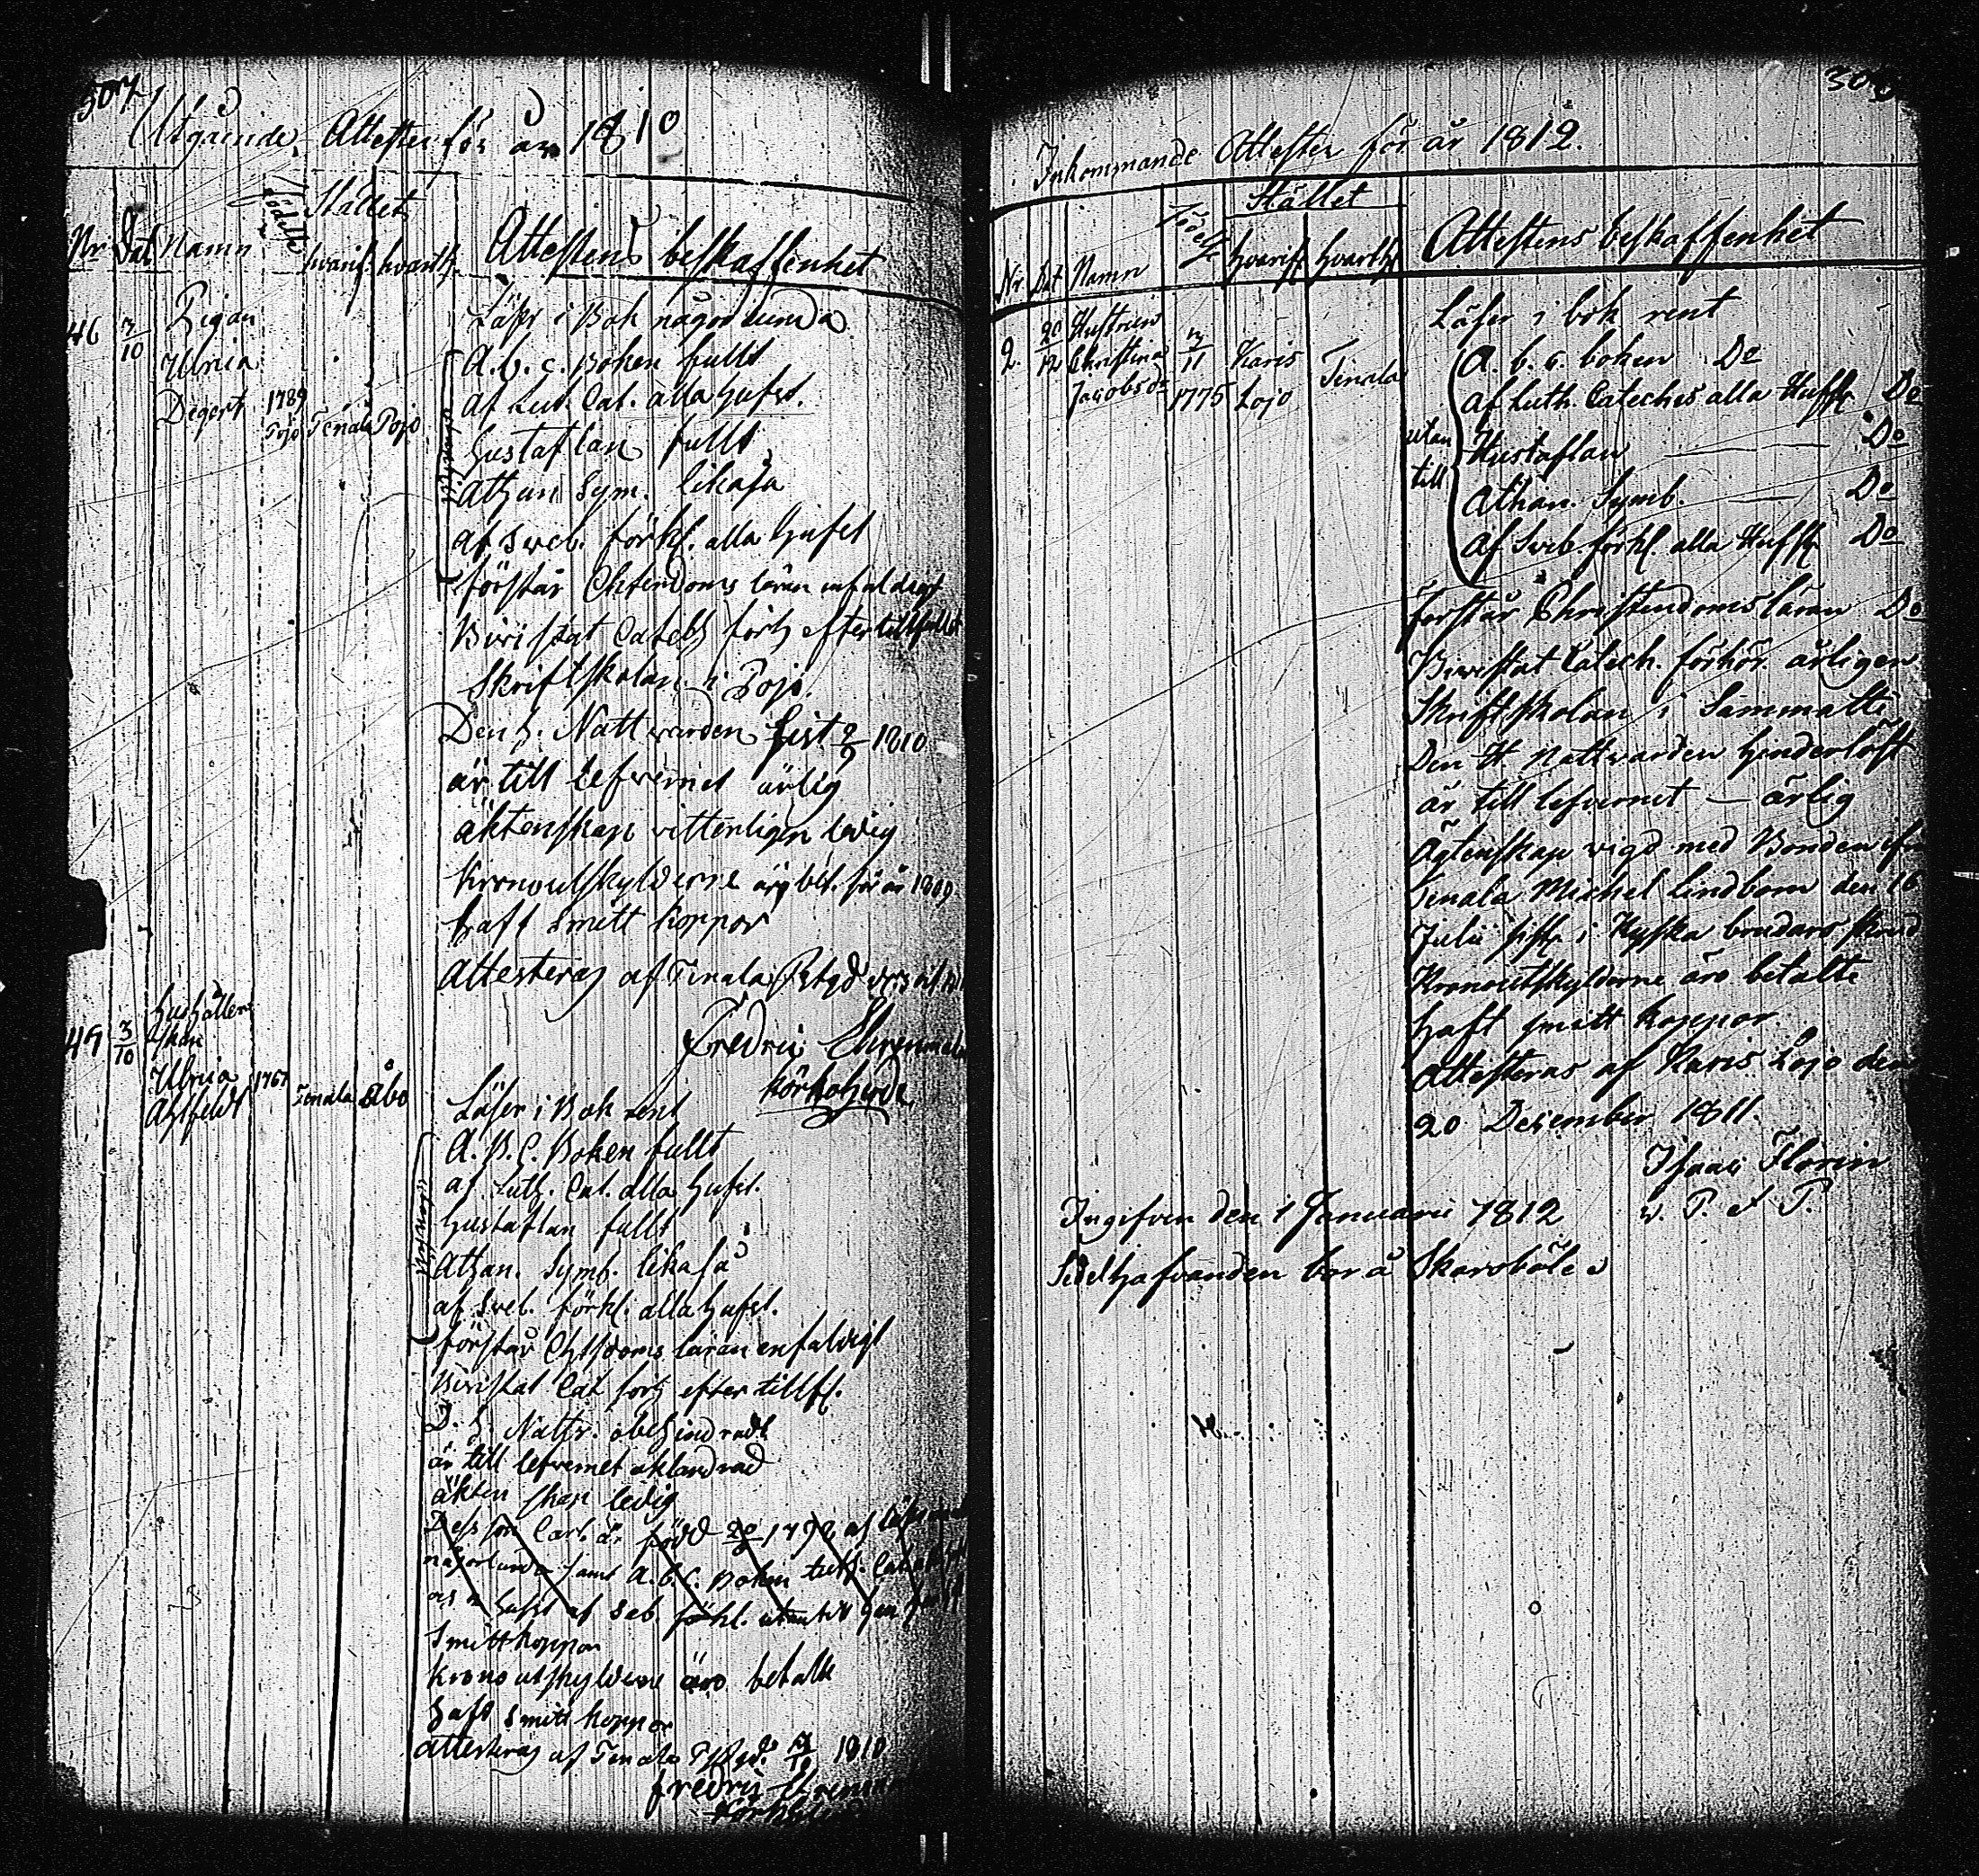 307
Utgående Attester för år 1810
Nr Dat Namn Födelse Stället
hvarifr. hvarth.
Attestens beskaffenhet
46 3/10 Pigan
Ulrica
Degert 1789
Pojo Tenala Pojo
Läser i Bok någorlunda
A.b.c. Boken fullt
af Lut. Cat. alla hufst.
hustaflan fullt
Athan Sym. likaså
af Sveb. förkl. alla hufst
förstår Chrendoms läran enfaldigt
Bivistat Catech förh efter tillfället
Skriftskolan i Pojo.
Den h. Nattvarden sist 2/9 1810
är till lefvernet ärlig
äktenskap vitterligen ledig
Kronoutskylderne för år 1809
haft smitt koppor
Attesteras af Tenala
Fredric Ehrenmalm
Körkoherde
49 3/10 hushållerskan
Ulrica
Ahlfeldt 1767 Tenala Åbo
Läser i Bok rent
A.B.C. Boken fullt
af Luth. Cat. alla hufst.
hustaflan fullt
Athan. Symb. likaså
af Sveb. förkl. alla hufst.
förstår Chrsdoms läran enfaldigt
Bivistat Cat förh efter tillf.
D. h. Nattv. obehindradt
är till lefvernet oklandrad
äktenskap ledig
Dess son Carl är född 1792
någorlunda samt A.b.c. Boken
af Seb. förkl. utantill
Smittkoppor
Kronoutskylderne äro betalte
haft smitt koppor
attesteras af Tenala 1810
Fredric
308
Inkommande Attester för år 1812.
Nr Dat Namn Födelse Stället
hvarifr hvarth
Attestens beskaffenhet
2 20/12 Hustrun
Christina
Jacobsdr 3/11
1775 Karis
Lojo Tenala
Läser i bok rent
utan till
A. b. c. boken Do
af Luth. Cateches alla Hufst Do
Hustaflan — Do
Athan. Symb. — Do
af Sveb. förkl. alla Hufst Do
förstår Christendomsläran Do
Bivistat Catech. förhör. årligen
Skriftskolan i Sammatti
Den H. Nattvarden hinderlöst
är till lefvernet — ärlig
Ägtenskap vigd med Bonden ifrån
Tenala Michel Lindbom den 16
Julii sistl. i Kyska brudars
Kronoutskylderne äro betalte
haft smitt koppor.
Attesteras af Karis Lojo den
20 December 1811.
Isaac Florin
v. P. et P.
Ingifven den 1 Januarii 1812
Sedelhafvanden bor å Skarsböle